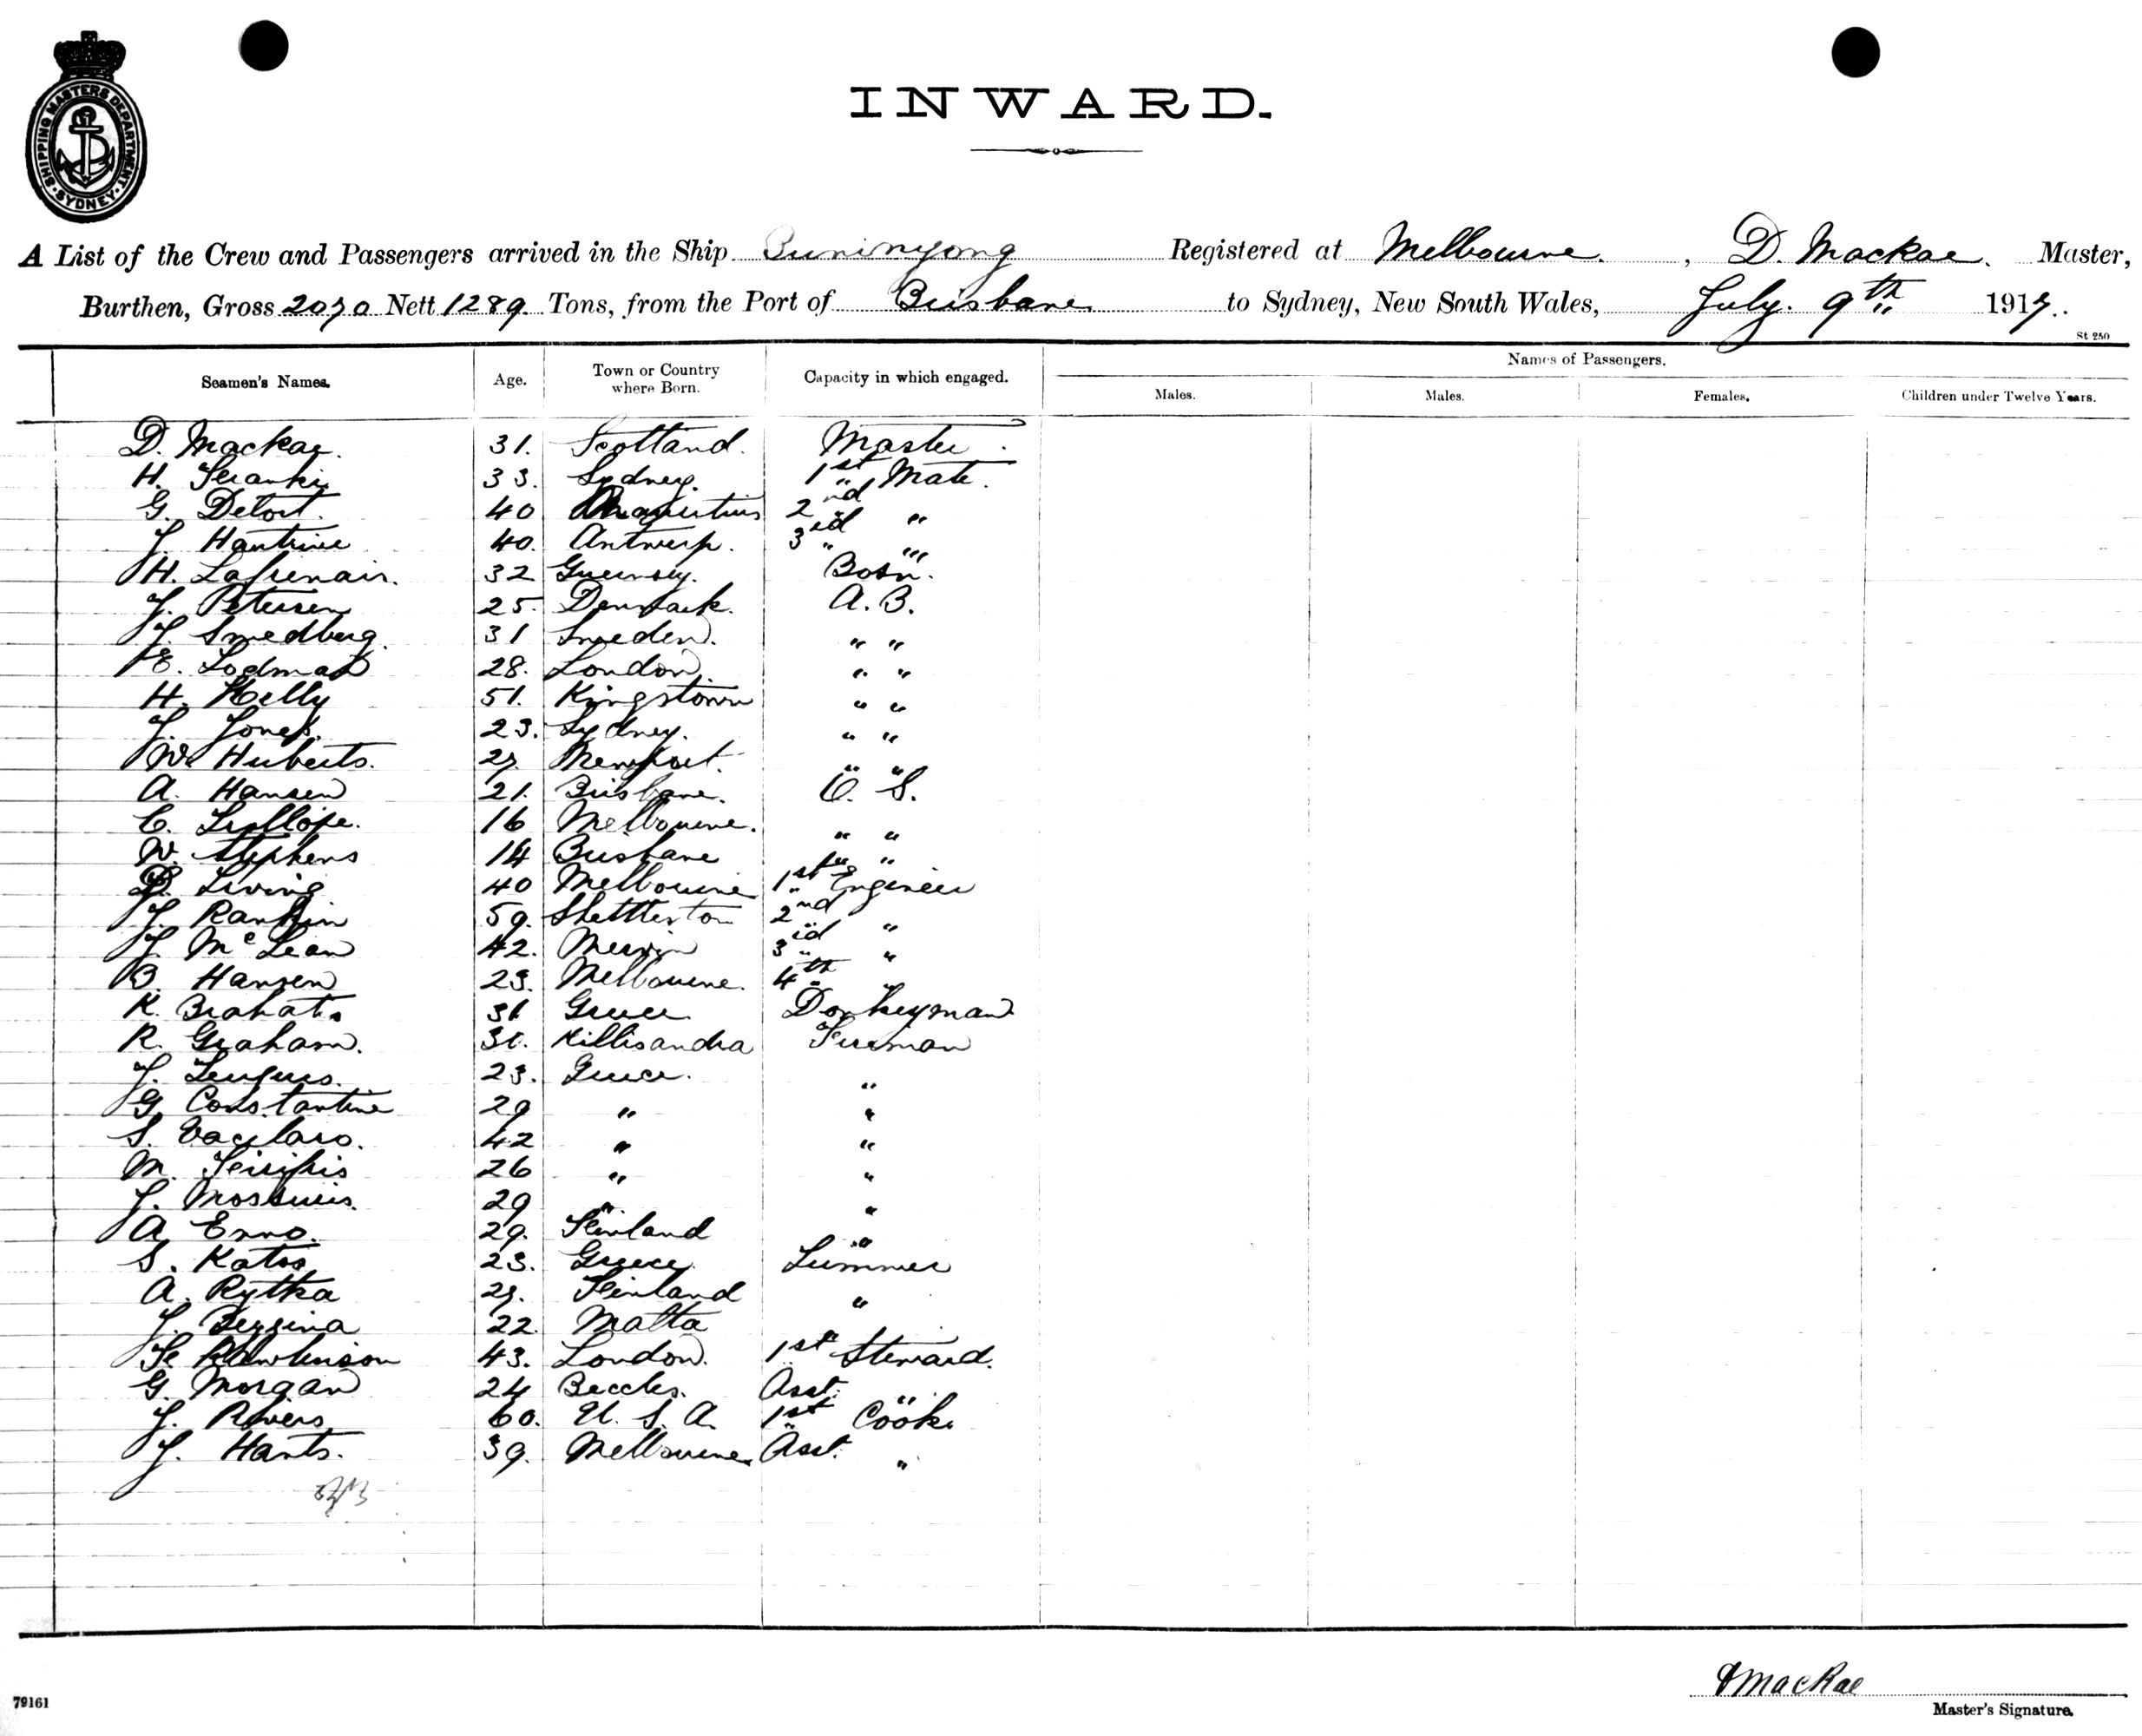 SHIPPING MASTERS DEPARTMENT
SYDNEY
INWARD.
A List of the Crew and Passengers arrived in the Ship Buninyong Registered at Melbourne. , D. Mackae. Master,
Burthen, Gross 2070 Nett 1289. Tons, from the Port of Brisbane to Sydney, New South Wales, July. 9th 1917.
St 250
Seamen's Names. Age. Town or Country where Born. Capacity in which engaged. Names of Passengers.
Males. Males. Females. Children under Twelve Years.
D. Mackae. 31. Scotland. Master
H. 33. Sydney. 1st Mate.
G. Detort. 40 Mauritius 2nd "
J. Hantrive 40. Antwerp. 3rd "
H. Lafrenair. 32 Guernsey. Bosn.
J. Petersen 25. Denmark. A. B.
J. Smedberg. 31 Sweden. " "
E. 28. London. " "
H. Kelly 51. Kingstown " "
J. Jones. 23. Sydney. " "
W. Huberts. 27. Newport. " "
A. Hansen 21. Brisbane. O. S.
C. Trollope. 16 Melbourne. " "
W. Stephens 14 Brisbane " "
Living 40 Melbourne 1st Engineer
J. Rankin 59. Shettleston 2nd "
J. McLean 42. 3rd "
B. Hansen 23. Melbourne. 4th "
K. 31 Greece Donkeyman
R. Graham. 30. Killisandra Fireman
J. 23. Greece. "
G. Constantine 29 " "
S. Vacilaro. 42 " "
M. 26 " "
J. 29 " "
A. Enno. 29. Finland "
S. Katos 23. Greece Trimmer
A. Rytka 27. Finland "
J. Bezzina 22. Malta "
Rawlinson 43. London. 1st Steward.
G. Morgan 24 Beccles. Asst. "
J. Rivers 60. U. S. A. 1st Cook.
J. Hants. 39. Melbourne. Asst. "
DMacRae
Master's Signature.
79161